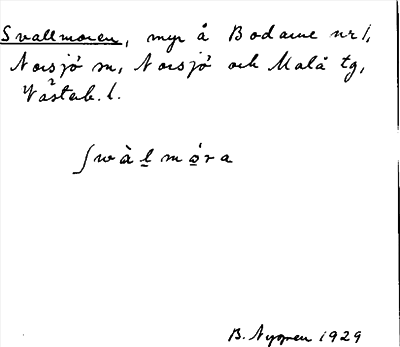 Svallmoren, myr å Bodarne nr 1,
Norsjö sn, Norsjö och Malå tg,
Västerb. l.
ʃwàl̲mó̲ra
B. Nygren 1929